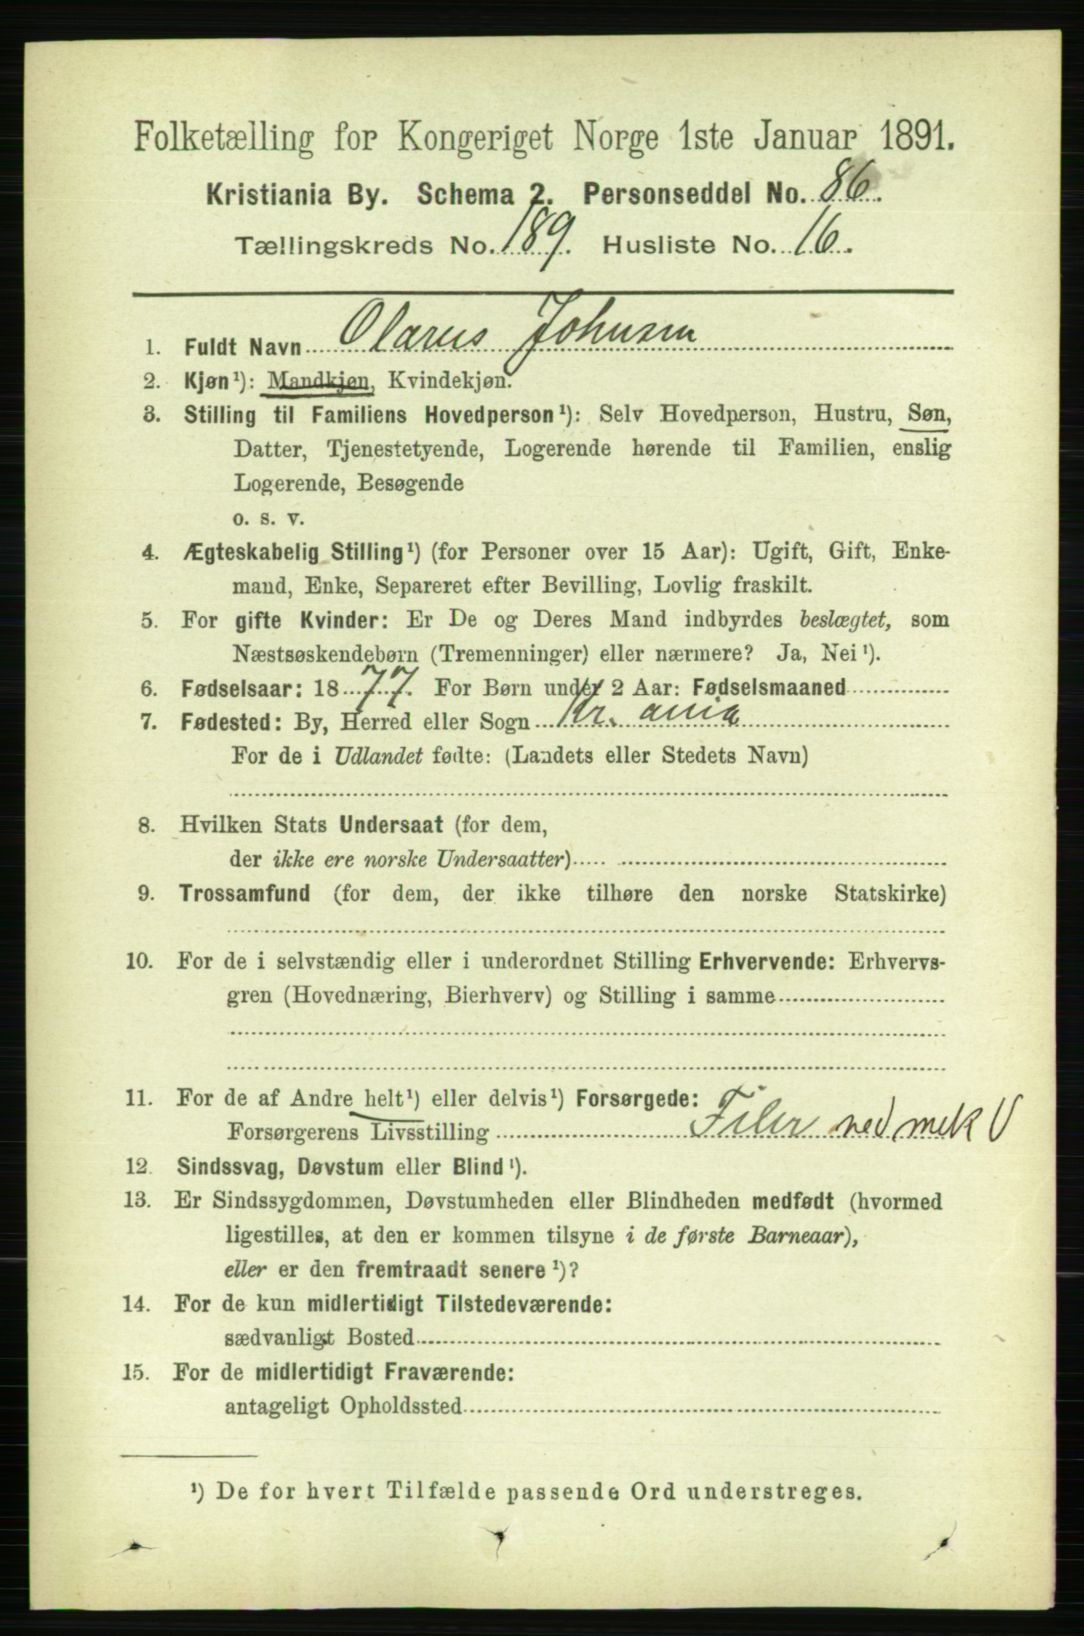 Folketælling for Kongeriget Norge 1ste Januar 1891.
Kristiania By. Schema 2. Personseddel No. 86.
Tællingskreds No. 189. Husliste No. 16.
1. Fuldt Navn Olarus Johnsen
2. Kjøn¹): Mandkjøn, Kvindekjøn.
3. Stilling til Familiens Hovedperson¹): Selv Hovedperson, Hustru, Søn,
Datter, Tjenestetyende, Logerende hørende til Familien, enslig
Logerende, Besøgende
o. s. v.
4. Ægteskabelig Stilling¹) (for Personer over 15 Aar): Ugift, Gift, Enke-
mand, Enke, Separeret efter Bevilling, Lovlig fraskilt.
5. For gifte Kvinder: Er De og Deres Mand indbyrdes beslægtet, som
Næstsøskendebørn (Tremenninger) eller nærmere? Ja, Nei¹).
6. Fødselsaar: 1877. For Børn under 2 Aar: Fødselsmaaned
7. Fødested: By, Herred eller Sogn Kr. ania
For de i Udlandet fødte: (Landets eller Stedets Navn)
8. Hvilken Stats Undersaat (for dem,
der ikke ere norske Undersaatter)
9. Trossamfund (for dem, der ikke tilhøre den norske Statskirke)
10. For de i selvstændig eller i underordnet Stilling Erhvervende: Erhvervs-
gren (Hovednæring, Bierhverv) og Stilling i samme
11. For de af Andre helt¹) eller delvis¹) Forsørgede:
Forsørgerens Livsstilling Filer ved mek V
12. Sindssvag, Døvstum eller Blind¹).
13. Er Sindssygdommen, Døvstumheden eller Blindheden medfødt (hvormed
ligestilles, at den er kommen tilsyne i de første Barneaar),
eller er den fremtraadt senere¹)?
14. For de kun midlertidigt Tilstedeværende:
sædvanligt Bosted
15. For de midlertidigt Fraværende:
antageligt Opholdssted
¹) De for hvert Tilfælde passende Ord understreges.